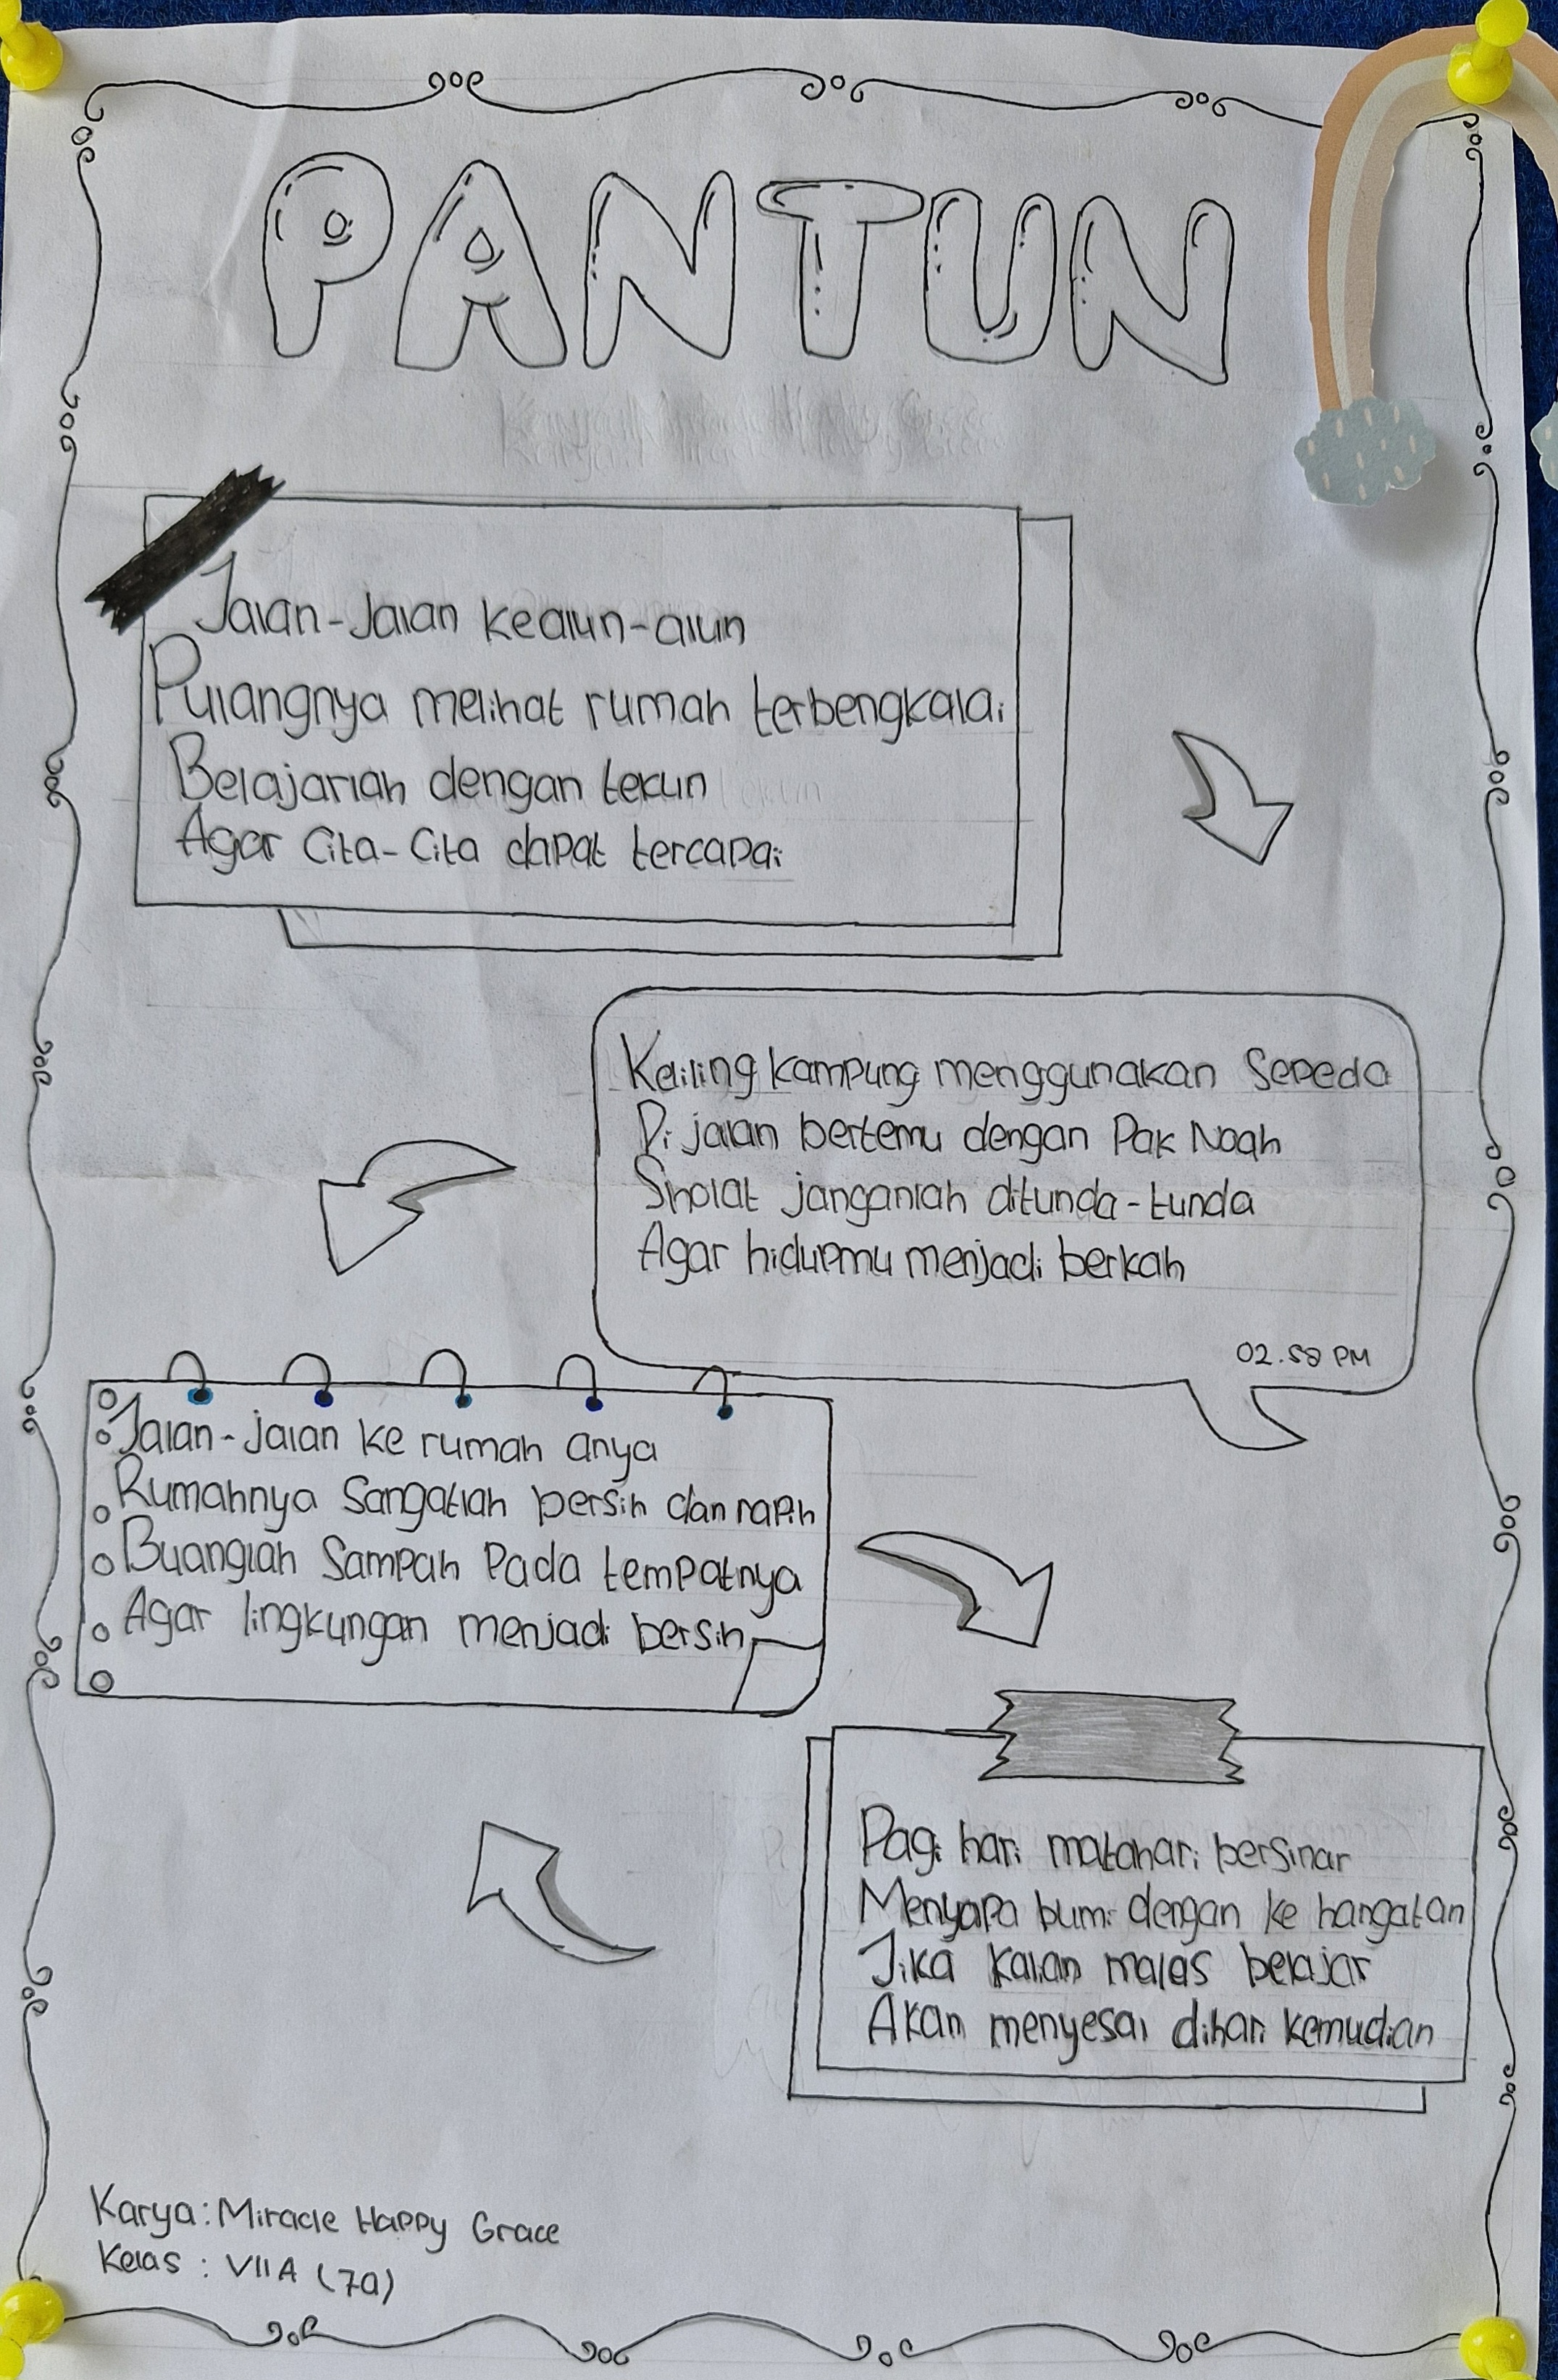 PANTUN
Jalan-Jalan kealun-alun
Pulangnya melihat rumah terbengkalai
Belajarlah dengan tekun
Agar Cita-Cita dapat tercapai
Keliling kampung menggunakan Sepeda
Di jalan bertemu dengan Pak Noah
Sholat janganlah ditunda-tunda
Agar hidupmu menjadi berkah
02.58 PM
Jalan-jalan ke rumah anya
Rumahnya Sangatlah bersih dan rapih
Buanglah Sampah Pada tempatnya
Agar lingkungan menjadi bersih
Pagi hari matahari bersinar
Menyapa bumi dengan ke hangatan
Jika kalian malas belajar
Akan menyesal dihari kemudian
Karya: Miracle Happy Grace
Kelas : VII A (7a)